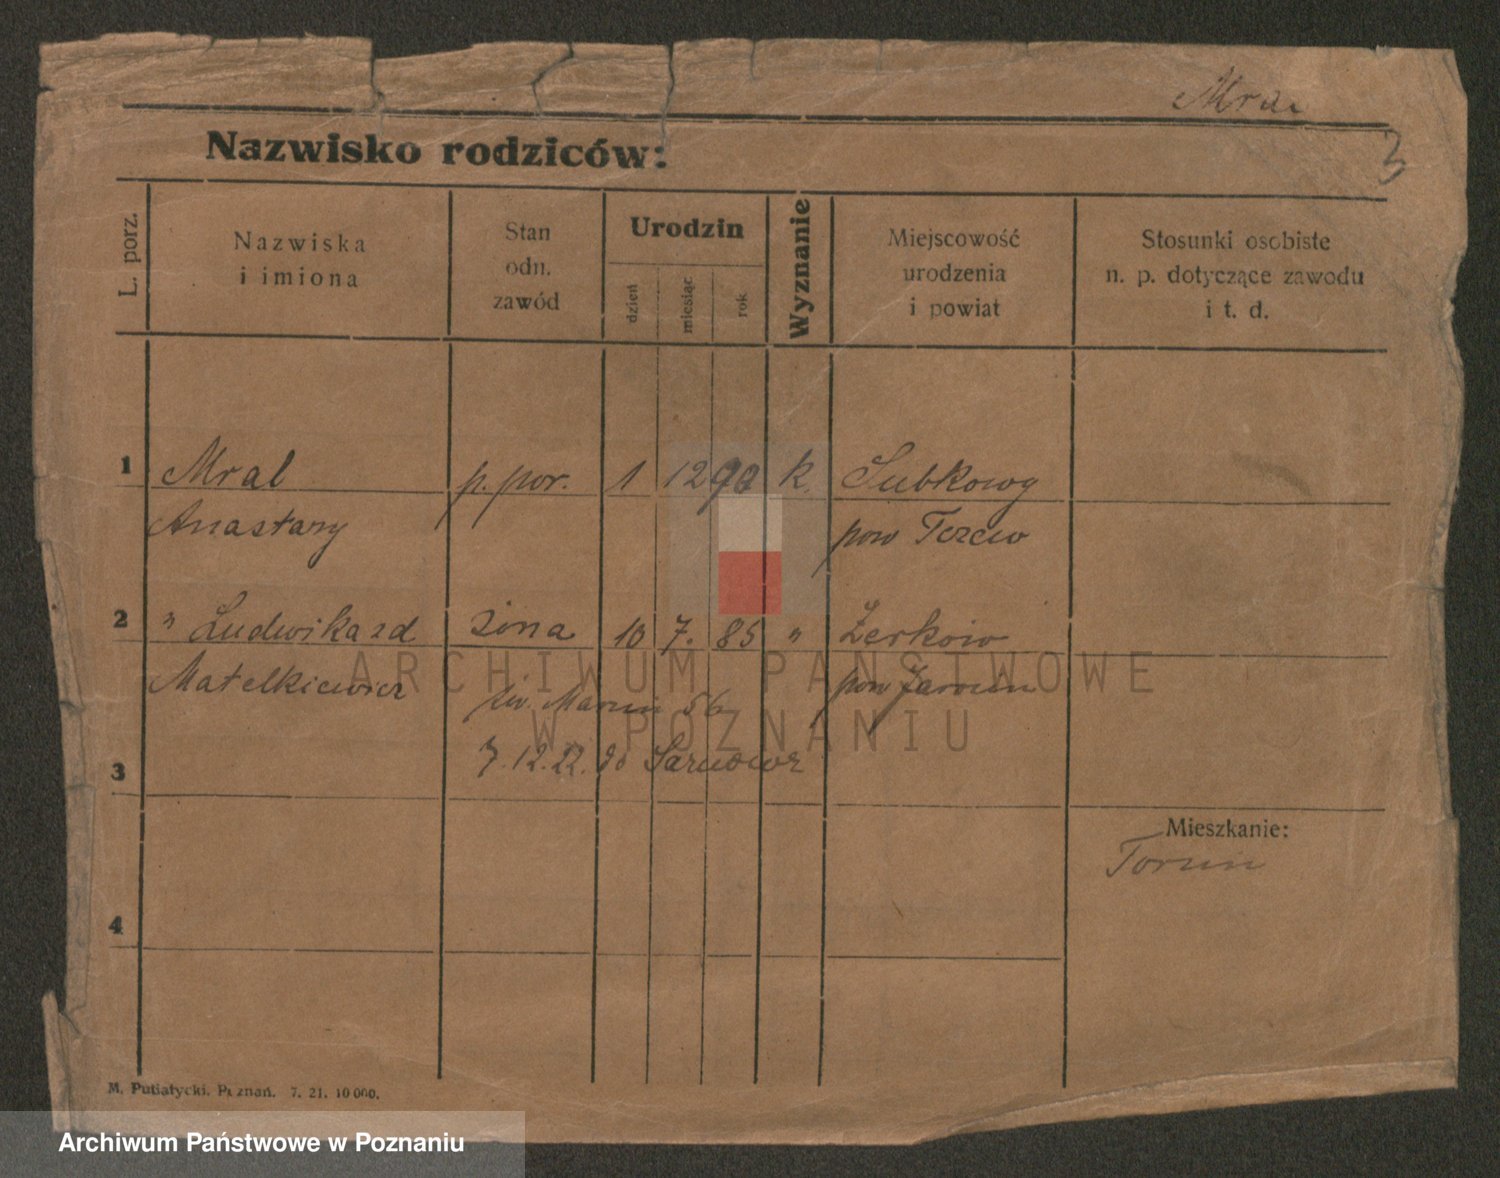 Mral
3
Nazwisko rodziców:
L. porz.
Nazwiska
i imiona
Stan
odn.
zawód
Urodzin
dzień
miesiąc
rok
Wyznanie
Miejscowość
urodzenia
i powiat
Stosunki osobiste
n. p. dotyczące zawodu
i t. d.
1 Mral p. por. 1 12 90 k. Subkowy
Anastazy pow Tczew
2 " Ludwika zd żona 10 7. 85 " Żerków
Matelkiewicz pow
56
3 7.12.22. do
Mieszkanie:
Toruń
4
M. Putiatycki. Poznań. 7. 21. 10 000.
ARCHIWUM PAŃSTWOWE
W POZNANIU
Archiwum Państwowe w Poznaniu